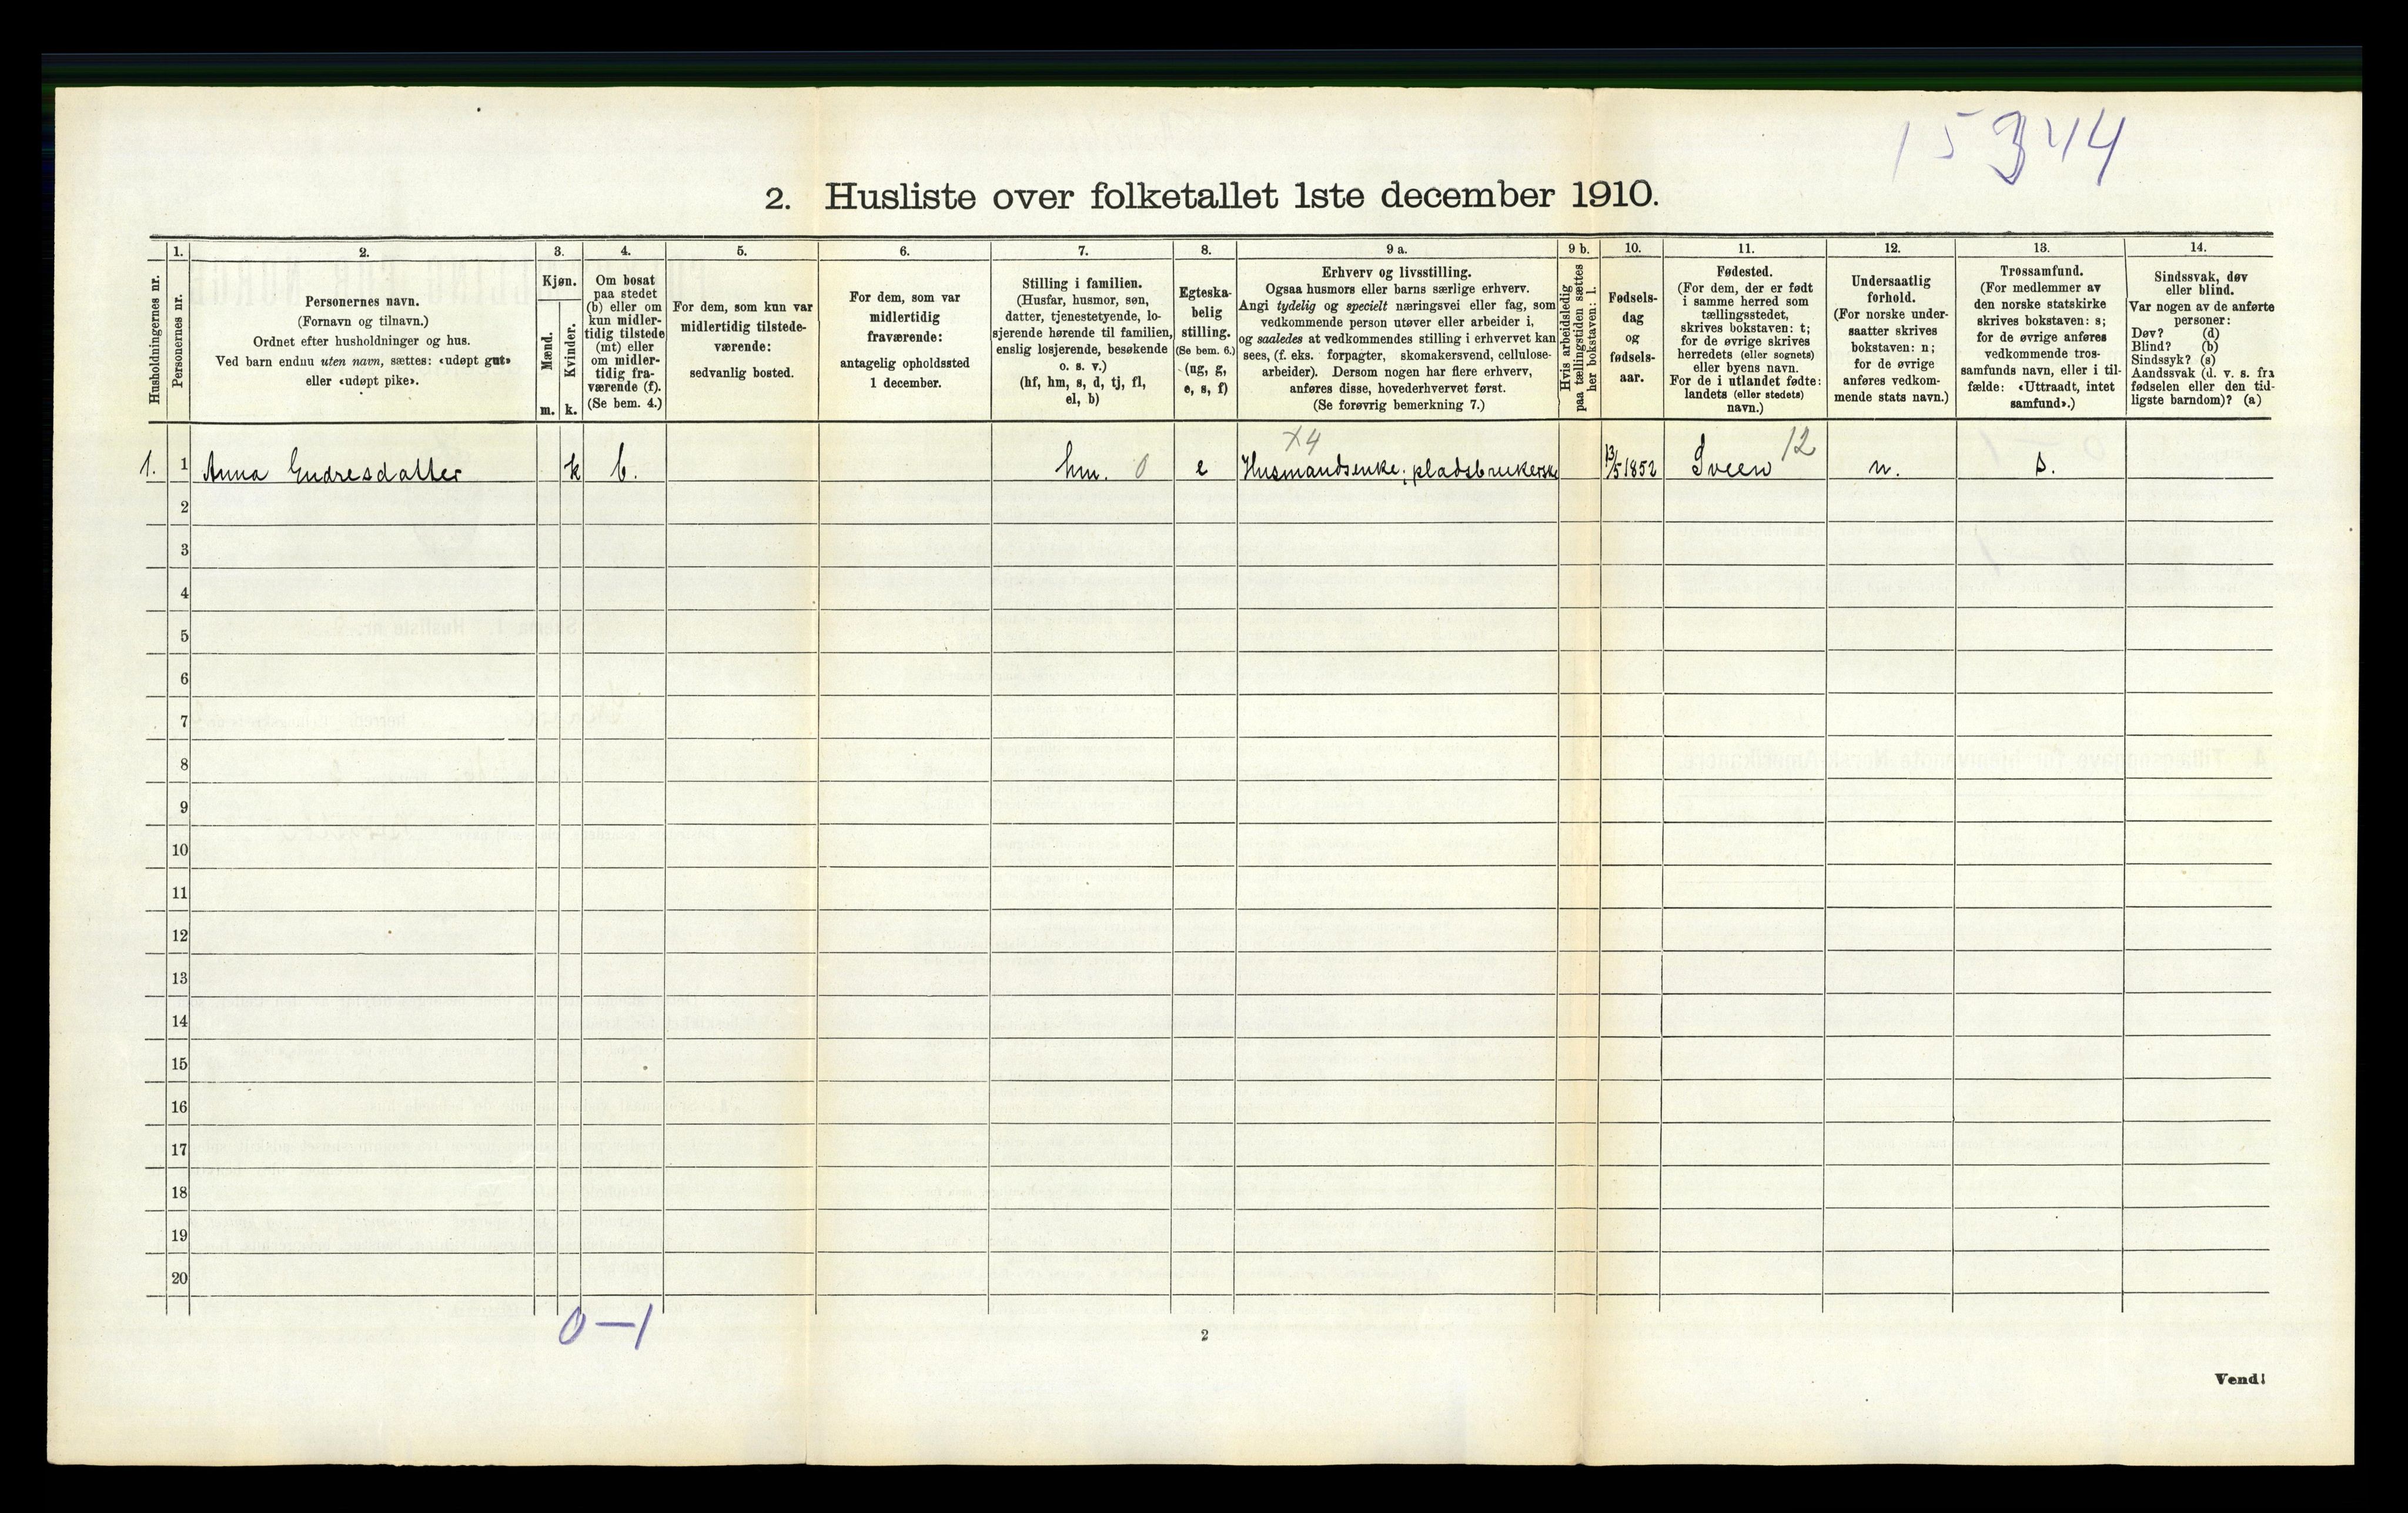 15344
2. Husliste over folketallet 1ste december 1910.
Husholdningernes nr.
1.
Personernes nr.
2.
Personernes navn.
(Fornavn og tilnavn.)
Ordnet efter husholdninger og hus.
Ved barn endnu uten navn, sættes: «udøpt gut»
eller «udøpt pike».
3.
Kjøn.
Mænd.
m.
Kvinder.
k.
4.
Om bosat
paa stedet
(b) eller om
kun midler-
tidig tilstede
(mt) eller
om midler-
tidig fra-
værende (f).
(Se bem. 4.)
5.
For dem, som kun var
midlertidig tilstede-
værende:
sedvanlig bosted.
6.
For dem, som var
midlertidig
fraværende:
antagelig opholdssted
1 december.
7.
Stilling i familien.
(Husfar, husmor, søn,
datter, tjenestetyende, lo-
sjerende hørende til familien,
enslig losjerende, besøkende
o. s. v.)
(hf, hm, s, d, tj, fl,
el, b)
8.
Egteska-
belig
stilling.
(Se bem. 6.)
(ug, g,
e, s, f)
9 a.
Erhverv og livsstilling.
Ogsaa husmors eller barns særlige erhverv.
Angi tydelig og specielt næringsvei eller fag, som
vedkommende person utøver eller arbeider i,
og saaledes at vedkommendes stilling i erhvervet kan
sees, (f. eks. forpagter, skomakersvend, cellulose-
arbeider). Dersom nogen har flere erhverv,
anføres disse, hovederhvervet først.
(Se forøvrig bemerkning 7.)
9 b.
Hvis arbeidsledig
paa tællingstiden sættes
her bokstaven: l.
10.
Fødsels-
dag
og
fødsels-
aar.
11.
Fødested.
(For dem, der er født
i samme herred som
tællingsstedet,
skrives bokstaven: t;
for de øvrige skrives
herredets (eller sognets)
eller byens navn.
For de i utlandet fødte:
landets (eller stedets)
navn.)
12.
Undersaatlig
forhold.
(For norske under-
saatter skrives
bokstaven: n;
for de øvrige
anføres vedkom-
mende stats navn.)
13.
Trossamfund.
(For medlemmer av
den norske statskirke
skrives bokstaven: s;
for de øvrige anføres
vedkommende tros-
samfunds navn, eller i til-
fælde: «Uttraadt, intet
samfund».)
14.
Sindssvak, døv
eller blind.
Var nogen av de anførte
personer:
Døv? (d)
Blind? (b)
Sindssyk? (s)
Aandssvak (d. v. s. fra
fødselen eller den tid-
ligste barndom)? (a)
X4 12
1. 1 Anna Endresdatter k b. hm. 0 e Husmandsenke; pladsbrukerske 13/5 1852 Sveen n. s.
2
3
4
5
6
7
8
9
10
11
12
13
14
15
16
17
18
19
20
0—1
2
Vend!